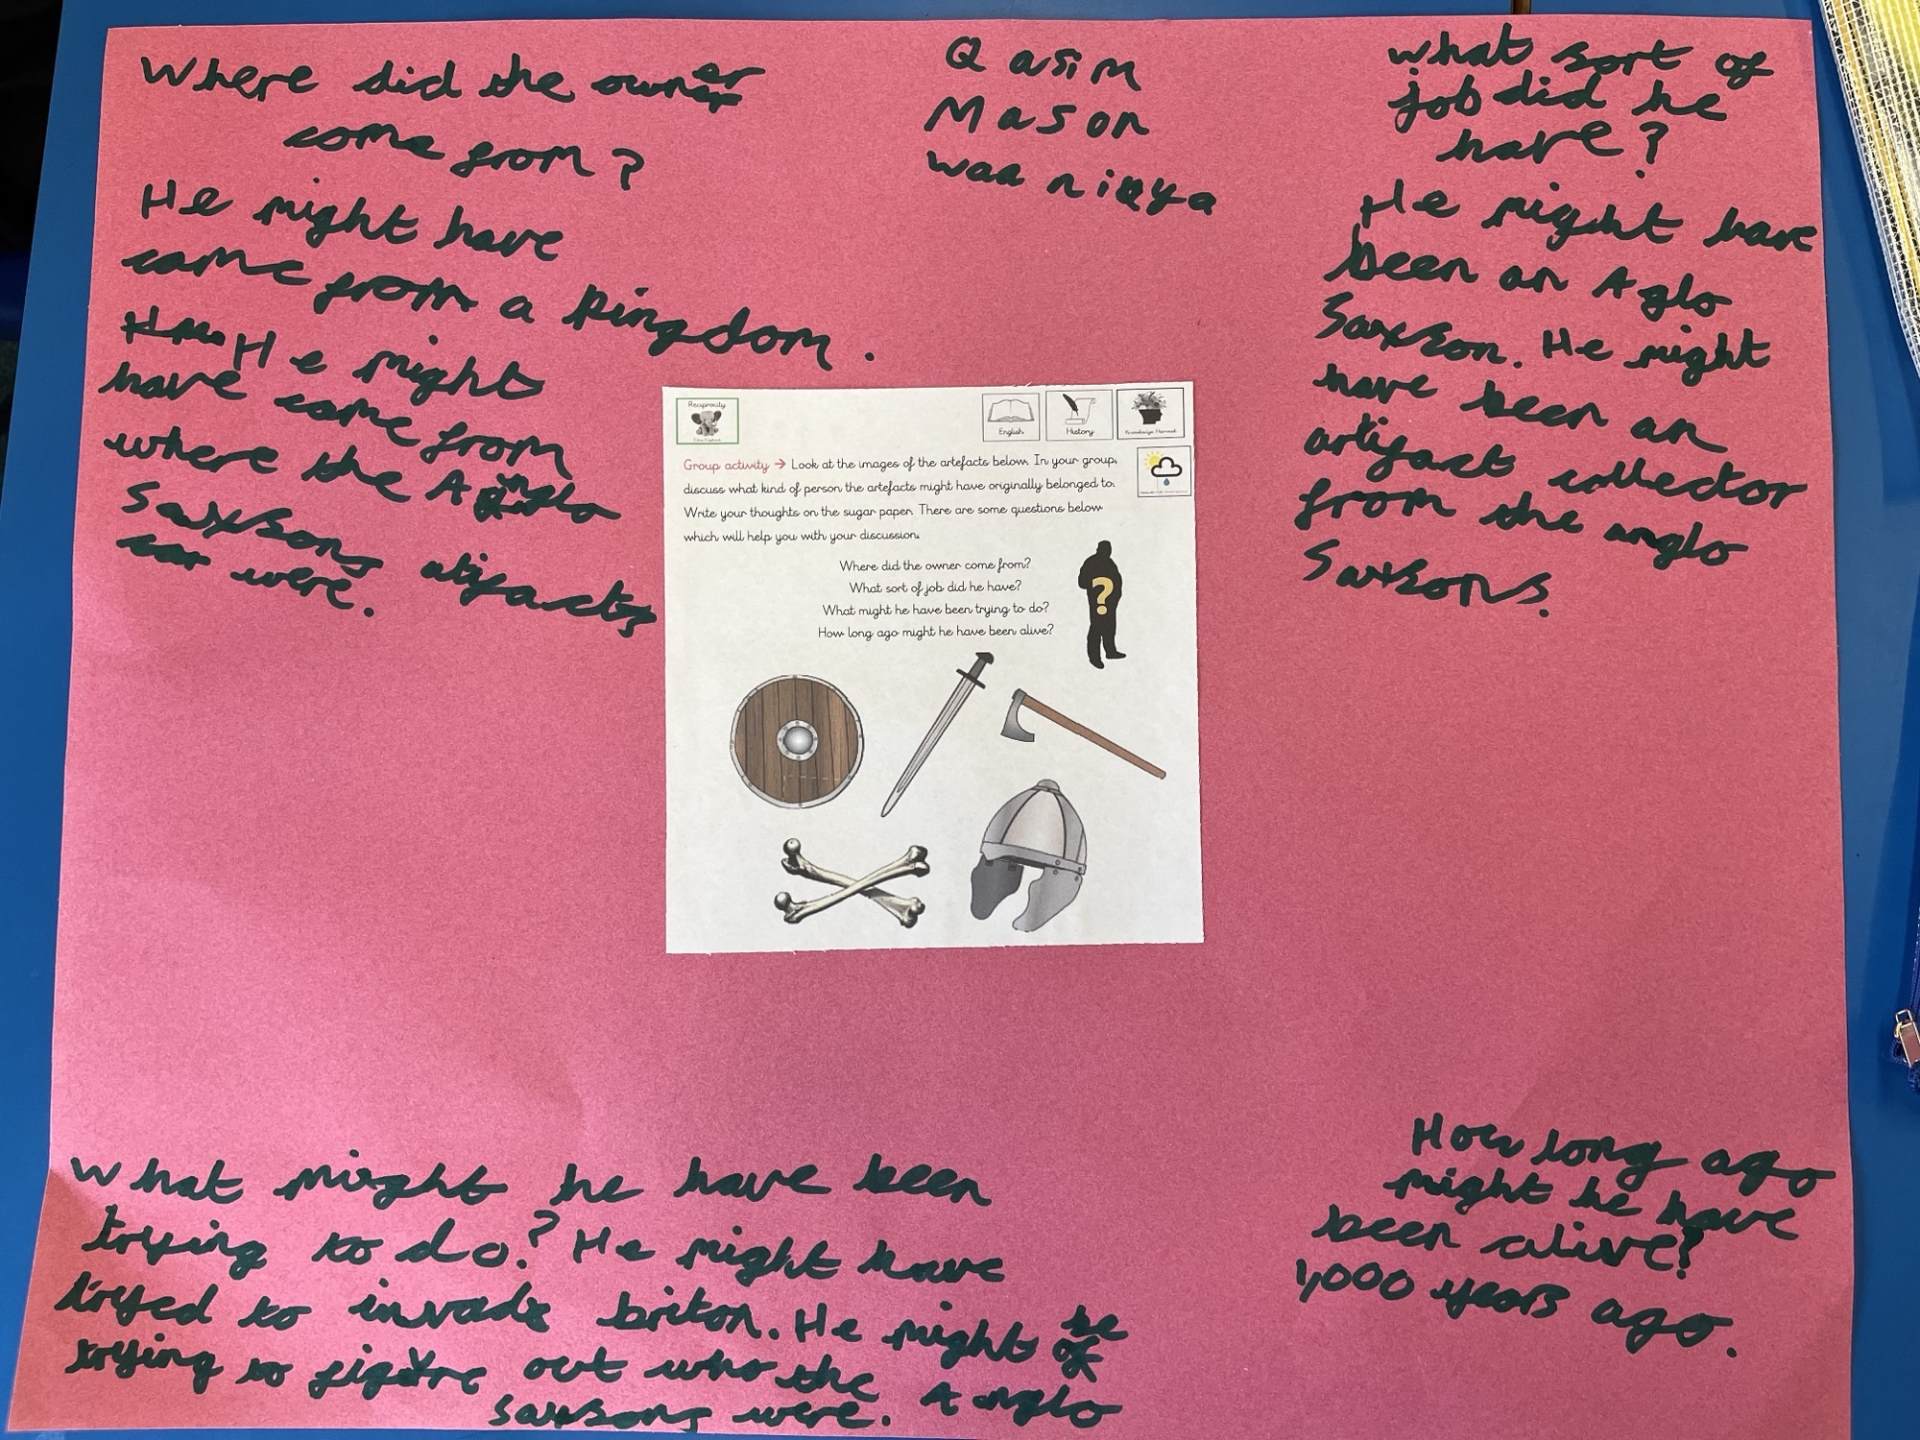 Where did the owner
come from?
He might have
came from a kingdom.
He might
have came from
where the Anglo
Saxsons atifacts
were.
Qasim
Mason
waaniqya
what sort of
job did he
have?
He might have
been an Aglo
Saxson. He might
have been an
artifact collector
from the anglo
Saxsons.
Reciprocity
English
History
Knowledge Harvest
Group activity → Look at the images of the artefacts below. In your group,
discuss what kind of person the artefacts might have originally belonged to.
Write your thoughts on the sugar paper. There are some questions below
which will help you with your discussion.
Where did the owner come from?
What sort of job did he have?
What might he have been trying to do?
How long ago might he have been alive?
?
What might he have been
trying to do? He might have
tryed to invade briton. He might be
trying to figure out who the Anglo
saxsons were.
How long ago
might he have
been alive?
1,000 years ago.